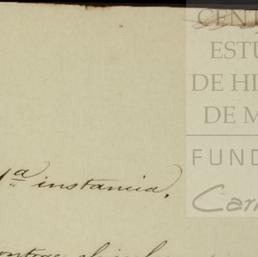 CENT
ESTU
DE HI
DE M
FUND
Car
1ª instancia.